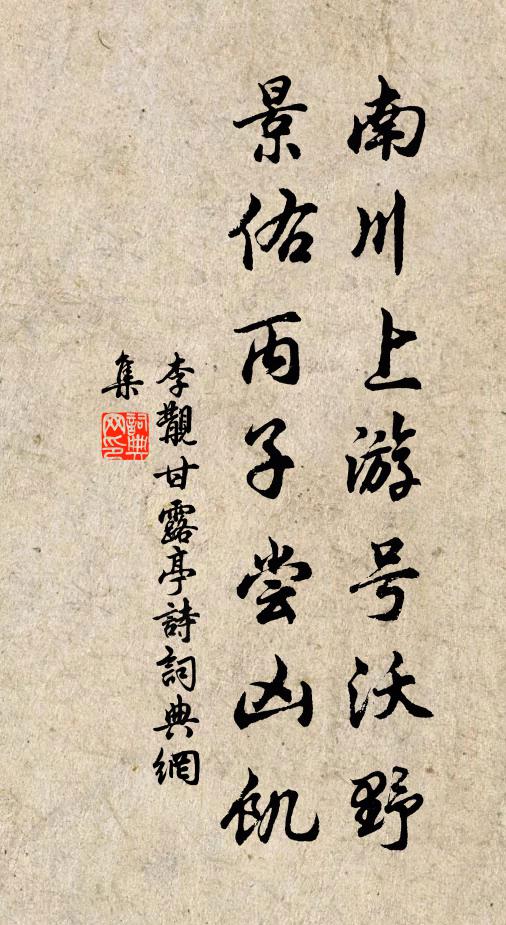 南川上游号沃野
景佑丙子尝凶饥
李觀甘露亭詩詞典網
集
詞典
网印